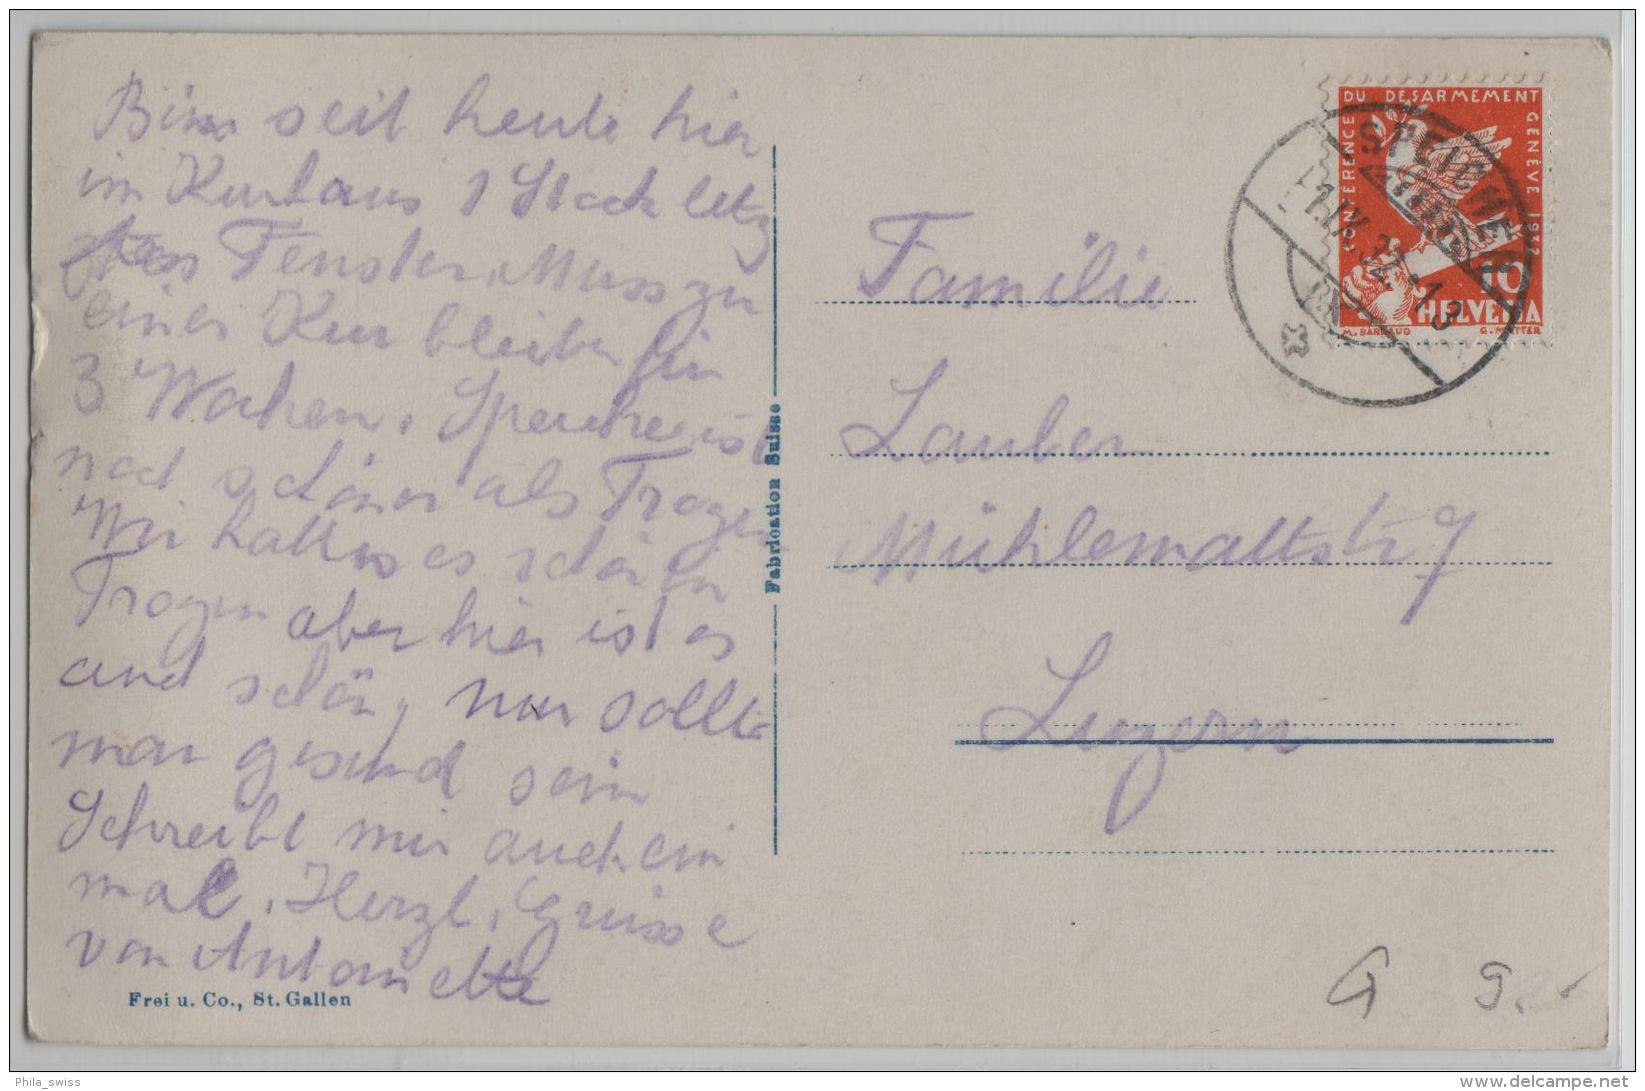 Bin seit heute hier
im Kurhaus 1 Stock letz
tes Fenster. Muss zu
einer Kur bleiben für
3 Wochen. Speicher ist
noch schöner als Trogen
Wir hatten es schön in
Trogen aber hier ist es
auch schön, nur sollte
man gesund sein
Schreibt mir auch ein
mal. Herzl. Grüsse
von Antoinette
Frei u. Co., St. Gallen
Fabrication Suisse
CONFERENCE DU DESARMEMENT GENEVE 1932
10
HELVETIA
M. BARRAUD G. MATTER
SPEICHER
1.IX.32-13
Familie
Lauber
Mühlemattstr 9
Luzern
G 9.-
Phila_swiss
delcampe.net